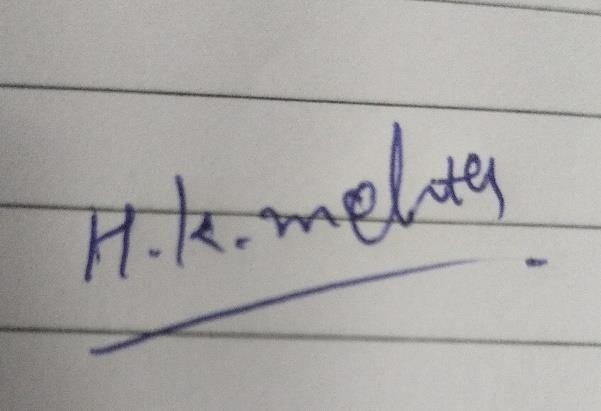 H.K. mehta